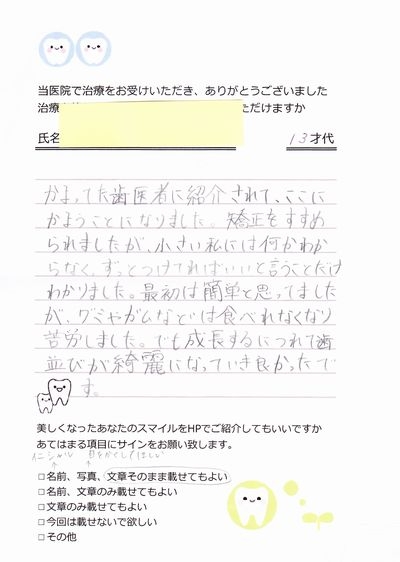 当医院で治療をお受けいただき、ありがとうございました
治療
ただけますか
氏名
13才代
かよってた歯医者に紹介されて、ここに
かようことになりました。矯正をすすめ
られましたが、小さい私には何かわか
らなく、ずっとつけてればいいと言うことだけ
わかりました。最初は簡単と思ってました
が、グミやガムなどは食べれなくなり
苦労しました。でも成長するにつれて歯
並びが綺麗になっていき良かったで
す。
美しくなったあなたのスマイルをHPでご紹介してもいいですか
あてはまる項目にサインをお願い致します。
イニシャル 目をかくしてほしい
↑ ↑
□名前、写真、文章そのまま載せてもよい
□名前、文章のみ載せてもよい
□文章のみ載せてもよい
□今回は載せないで欲しい
□その他